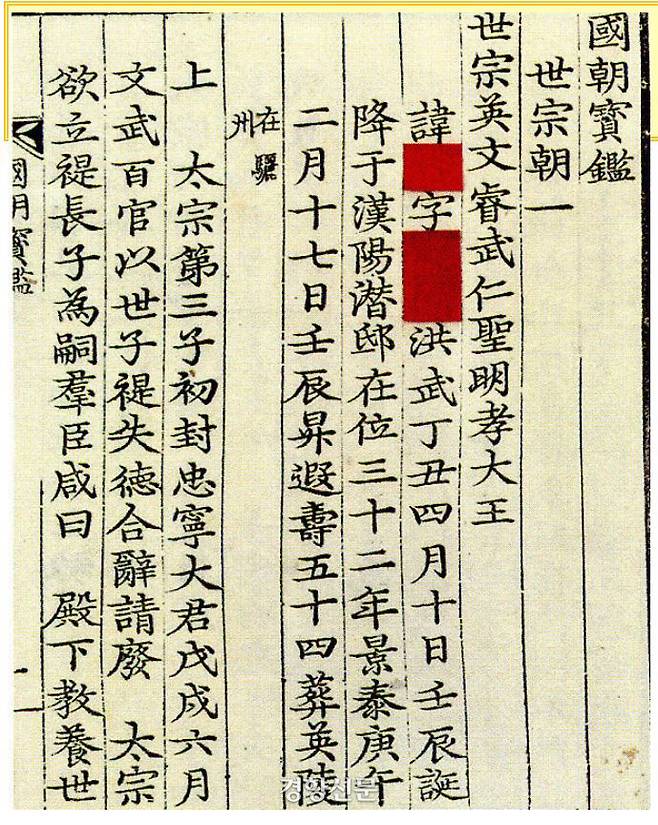 國朝寶鑑
世宗朝一
世宗英文睿武仁聖明孝大王
諱 字 洪武丁丑四月十日壬辰誕
降于漢陽潛邸在位三十二年景泰庚午
二月十七日壬辰昇遐壽五十四葬英陵
在驪
州
上 太宗第三子初封忠寧大君戊戌六月
文武百官以世子禔失德合辭請廢 太宗
欲立禔長子為嗣羣臣咸曰 殿下教養世
國朝寶鑑
一
경향신문